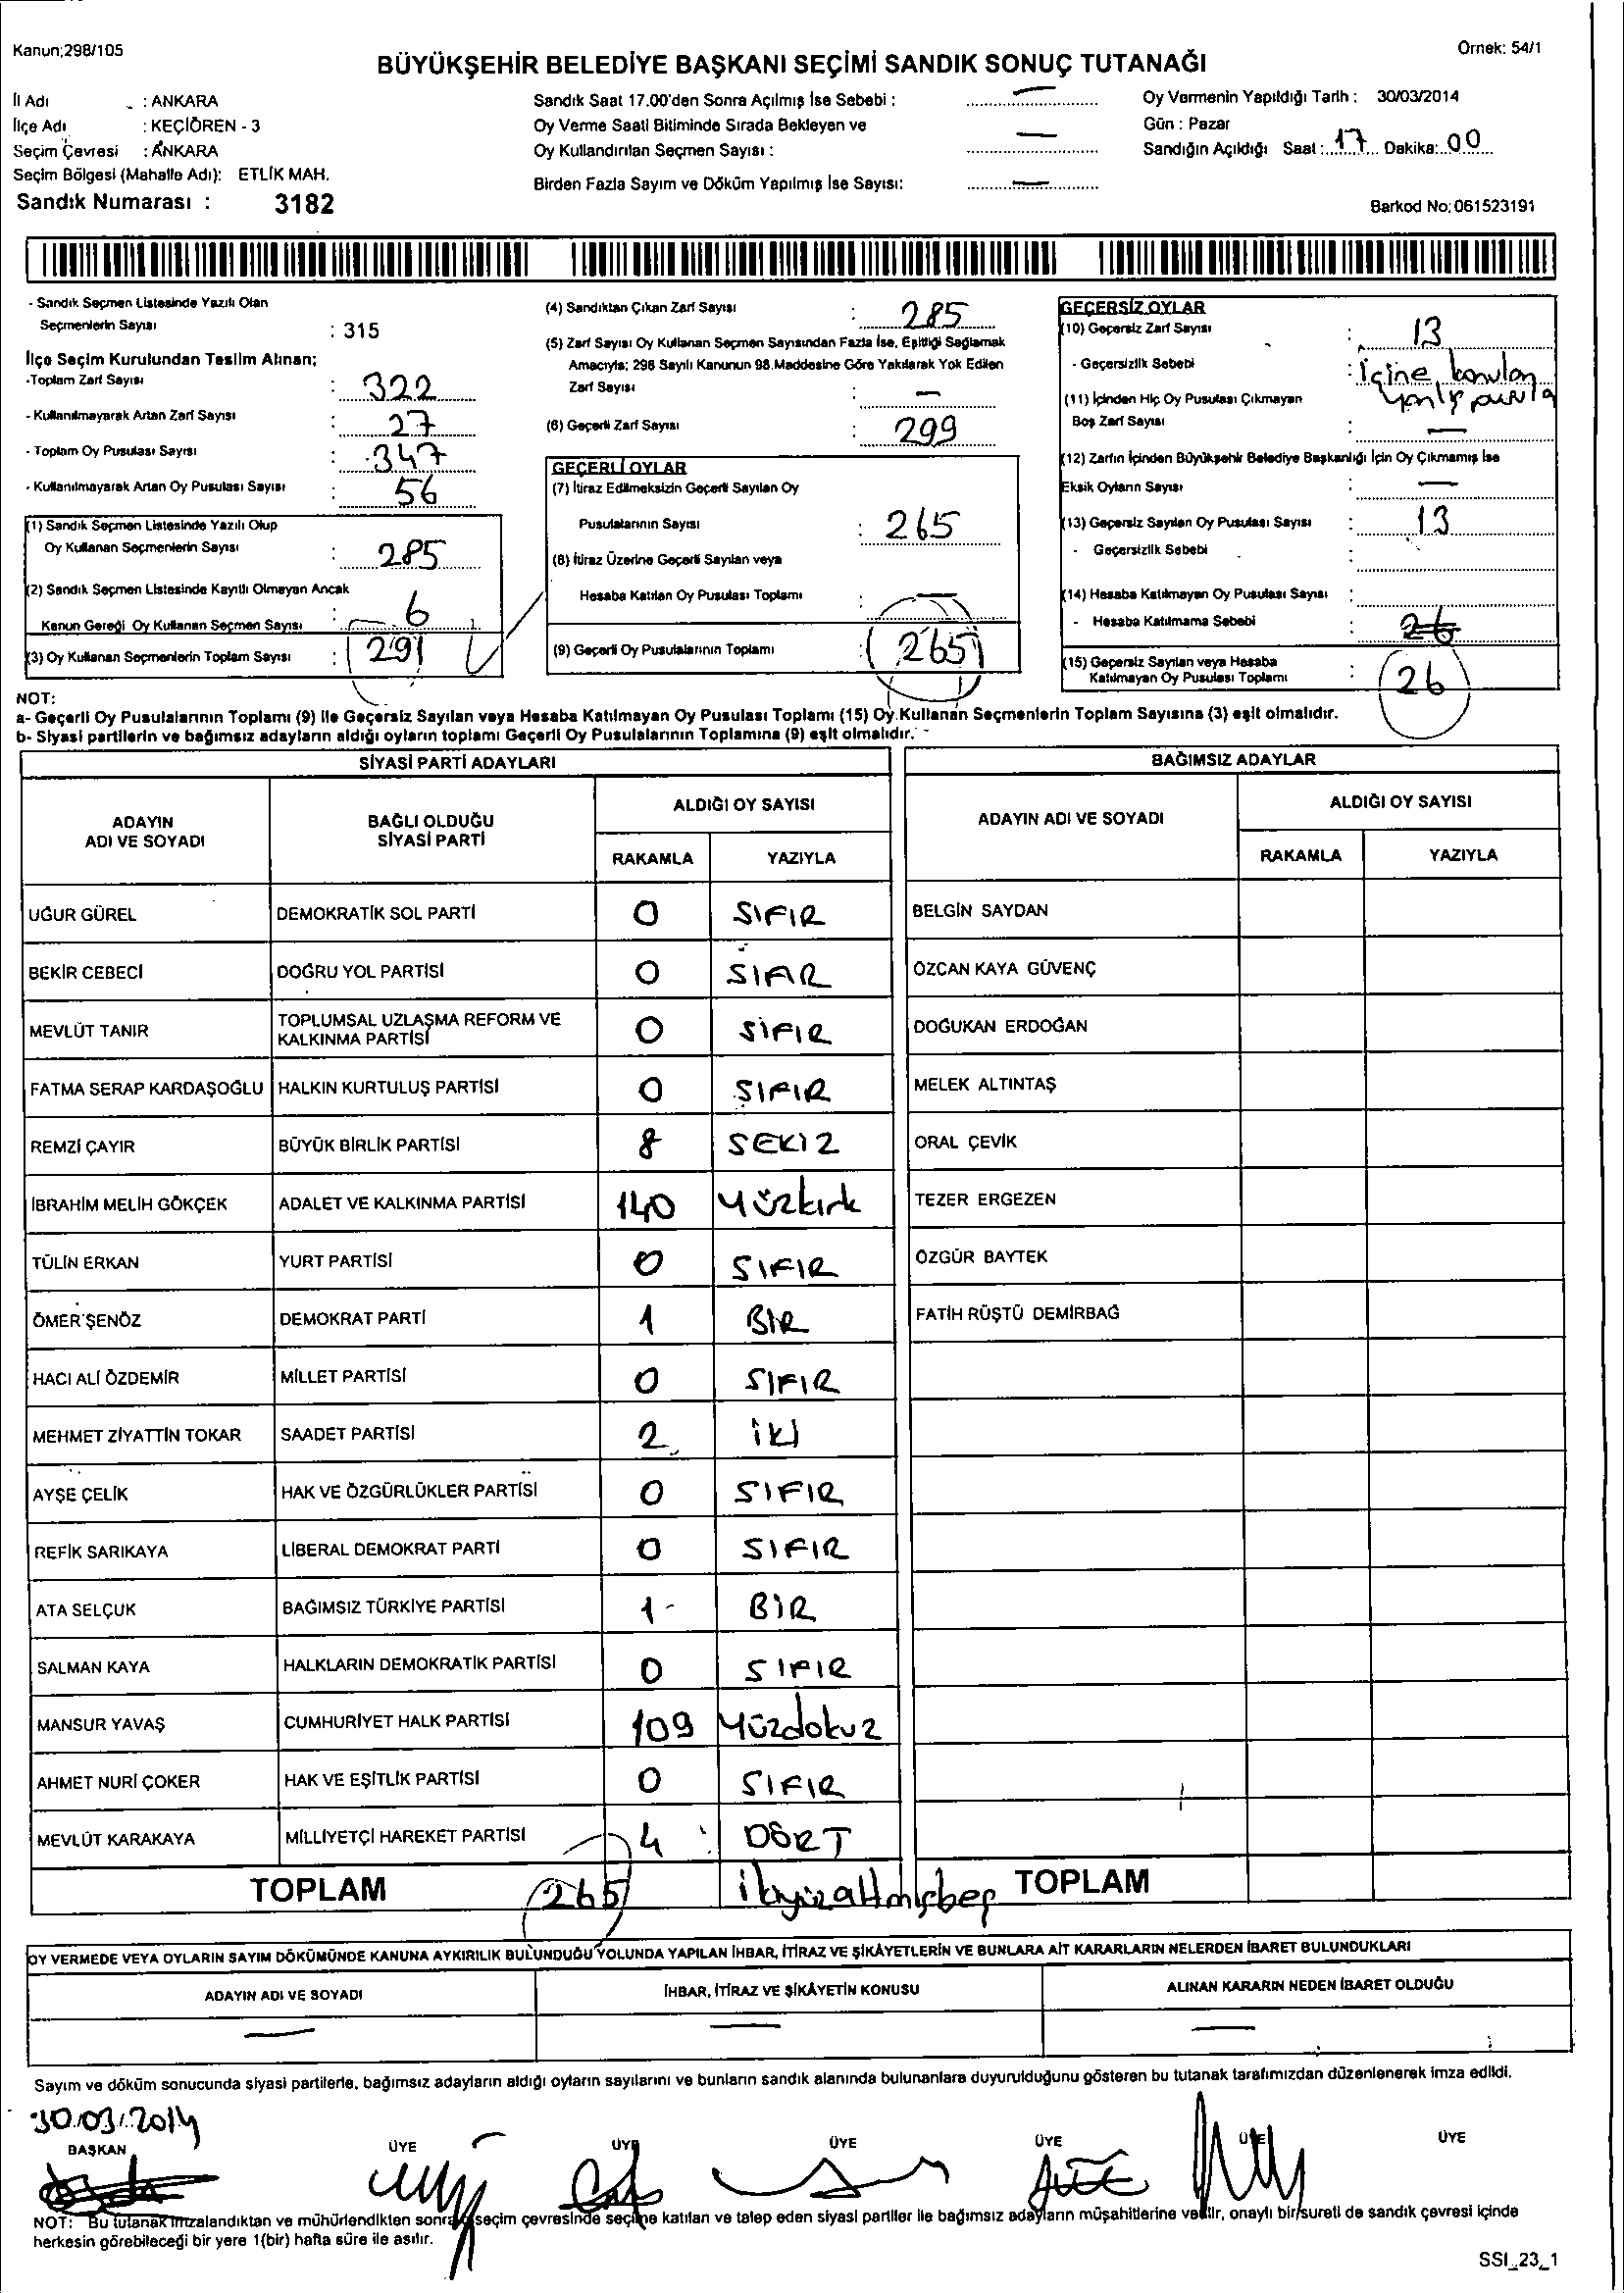 Kanun;298/105
Örnek: 54/1
BÜYÜKŞEHİR BELEDİYE BAŞKANI SEÇİMİ SANDIK SONUÇ TUTANAĞI
İl Adı : ANKARA
İlçe Adı : KEÇİÖREN - 3
Seçim Çevresi : ANKARA
Seçim Bölgesi (Mahalle Adı): ETLİK MAH.
Sandık Numarası : 3182
Sandık Saat 17.00'den Sonra Açılmış İse Sebebi : —
Oy Verme Saati Bitiminde Sırada Bekleyen ve
Oy Kullandırılan Seçmen Sayısı : —
Birden Fazla Sayım ve Döküm Yapılmış İse Sayısı: —
Oy Vermenin Yapıldığı Tarih : 30/03/2014
Gün : Pazar
Sandığın Açıldığı Saat : 17 Dakika: 00
Barkod No: 061523191
- Sandık Seçmen Listesinde Yazılı Olan
Seçmenlerin Sayısı : 315
İlçe Seçim Kurulundan Teslim Alınan;
-Toplam Zarf Sayısı : 322
- Kullanılmayarak Artan Zarf Sayısı : 27
- Toplam Oy Pusulası Sayısı : 347
- Kullanılmayarak Artan Oy Pusulası Sayısı : 56
(1) Sandık Seçmen Listesinde Yazılı Olup
Oy Kullanan Seçmenlerin Sayısı : 285
(2) Sandık Seçmen Listesinde Kayıtlı Olmayan Ancak
Kanun Gereği Oy Kullanan Seçmen Sayısı : 6
(3) Oy Kullanan Seçmenlerin Toplam Sayısı : 291
(4) Sandıktan Çıkan Zarf Sayısı : 285
(5) Zarf Sayısı Oy Kullanan Seçmen Sayısından Fazla İse, Eşitliği Sağlamak
Amacıyla; 298 Sayılı Kanunun 98.Maddesine Göre Yakılarak Yok Edilen
Zarf Sayısı : —
(6) Geçerli Zarf Sayısı : 299
GEÇERLİ OYLAR
(7) İtiraz Edilmeksizin Geçerli Sayılan Oy
Pusulalarının Sayısı : 265
(8) İtiraz Üzerine Geçerli Sayılan veya
Hesaba Katılan Oy Pusulası Toplamı : —
(9) Geçerli Oy Pusulalarının Toplamı : 265
GEÇERSİZ OYLAR
(10) Geçersiz Zarf Sayısı : 13
- Geçersizlik Sebebi : içine konulan
yanlış pusula
(11) İçinden Hiç Oy Pusulası Çıkmayan
Boş Zarf Sayısı : —
(12) Zarfın İçinden Büyükşehir Belediye Başkanlığı İçin Oy Çıkmamış İse
Eksik Oyların Sayısı : —
(13) Geçersiz Sayılan Oy Pusulası Sayısı : 13
- Geçersizlik Sebebi :
(14) Hesaba Katılmayan Oy Pusulası Sayısı :
- Hesaba Katılmama Sebebi : 26
(15) Geçersiz Sayılan veya Hesaba
Katılmayan Oy Pusulası Toplamı : 26
NOT:
a- Geçerli Oy Pusulalarının Toplamı (9) ile Geçersiz Sayılan veya Hesaba Katılmayan Oy Pusulası Toplamı (15) Oy Kullanan Seçmenlerin Toplam Sayısına (3) eşit olmalıdır.
b- Siyasi partilerin ve bağımsız adayların aldığı oyların toplamı Geçerli Oy Pusulalarının Toplamına (9) eşit olmalıdır.
SİYASİ PARTİ ADAYLARI
ADAYIN ADI VE SOYADI
BAĞLI OLDUĞU SİYASİ PARTİ
ALDIĞI OY SAYISI
RAKAMLA YAZIYLA
UĞUR GÜREL DEMOKRATİK SOL PARTİ 0 SIFIR
BEKİR CEBECİ DOĞRU YOL PARTİSİ 0 SIFIR
MEVLÜT TANIR TOPLUMSAL UZLAŞMA REFORM VE KALKINMA PARTİSİ 0 SIFIR
FATMA SERAP KARDAŞOĞLU HALKIN KURTULUŞ PARTİSİ 0 SIFIR
REMZİ ÇAYIR BÜYÜK BİRLİK PARTİSİ 8 SEKİZ
İBRAHİM MELİH GÖKÇEK ADALET VE KALKINMA PARTİSİ 140 Yüzkırk
TÜLİN ERKAN YURT PARTİSİ 0 SIFIR
ÖMER ŞENÖZ DEMOKRAT PARTİ 1 BİR
HACI ALİ ÖZDEMİR MİLLET PARTİSİ 0 SIFIR
MEHMET ZİYATTİN TOKAR SAADET PARTİSİ 2 İKİ
AYŞE ÇELİK HAK VE ÖZGÜRLÜKLER PARTİSİ 0 SIFIR
REFİK SARIKAYA LİBERAL DEMOKRAT PARTİ 0 SIFIR
ATA SELÇUK BAĞIMSIZ TÜRKİYE PARTİSİ 1 BİR
SALMAN KAYA HALKLARIN DEMOKRATİK PARTİSİ 0 SIFIR
MANSUR YAVAŞ CUMHURİYET HALK PARTİSİ 109 Yüzdokuz
AHMET NURİ ÇOKER HAK VE EŞİTLİK PARTİSİ 0 SIFIR
MEVLÜT KARAKAYA MİLLİYETÇİ HAREKET PARTİSİ 4 DÖRT
TOPLAM 265 ikiyüzaltmışbeş
BAĞIMSIZ ADAYLAR
ADAYIN ADI VE SOYADI
ALDIĞI OY SAYISI
RAKAMLA YAZIYLA
BELGİN SAYDAN
ÖZCAN KAYA GÜVENÇ
DOĞUKAN ERDOĞAN
MELEK ALTINTAŞ
ORAL ÇEVİK
TEZER ERGEZEN
ÖZGÜR BAYTEK
FATİH RÜŞTÜ DEMİRBAĞ
TOPLAM
OY VERMEDE VEYA OYLARIN SAYIM DÖKÜMÜNDE KANUNA AYKIRILIK BULUNDUĞU YOLUNDA YAPILAN İHBAR, İTİRAZ VE ŞİKÂYETLERİN VE BUNLARA AİT KARARLARIN NELERDEN İBARET BULUNDUKLARI
ADAYIN ADI VE SOYADI İHBAR, İTİRAZ VE ŞİKÂYETİN KONUSU ALINAN KARARIN NEDEN İBARET OLDUĞU
— — —
Sayım ve döküm sonucunda siyasi partilerle, bağımsız adayların aldığı oyların sayılarını ve bunların sandık alanında bulunanlara duyurulduğunu gösteren bu tutanak tarafımızdan düzenlenerek imza edildi.
30.03.2014
BAŞKAN ÜYE ÜYE ÜYE ÜYE ÜYE ÜYE
NOT: Bu tutanak imzalandıktan ve mühürlendikten sonra seçim çevresinde seçime katılan ve talep eden siyasi partiler ile bağımsız adayların müşahitlerine verilir, onaylı bir sureti de sandık çevresi içinde
herkesin görebileceği bir yere 1(bir) hafta süre ile asılır.
SSI_23_1